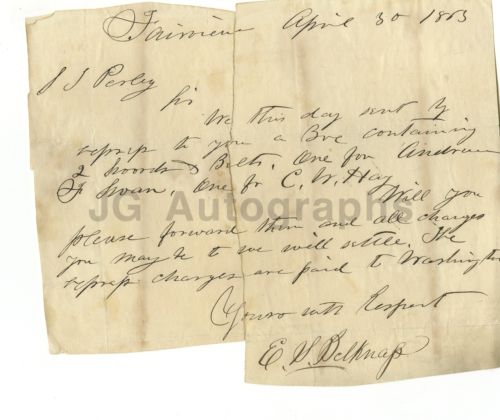 Fairview April 30 1863
J J Perley
Sir
We this day sent by
express to you a Box containing
2 swords & Belts. One for Andrew
F Swan, One for C. W. Hay
Will you
please forward them and all charges
you may be to we will settle. The
express charges are paid to Washington
Yours with Respect
E. S. Belknap
JG Autographs